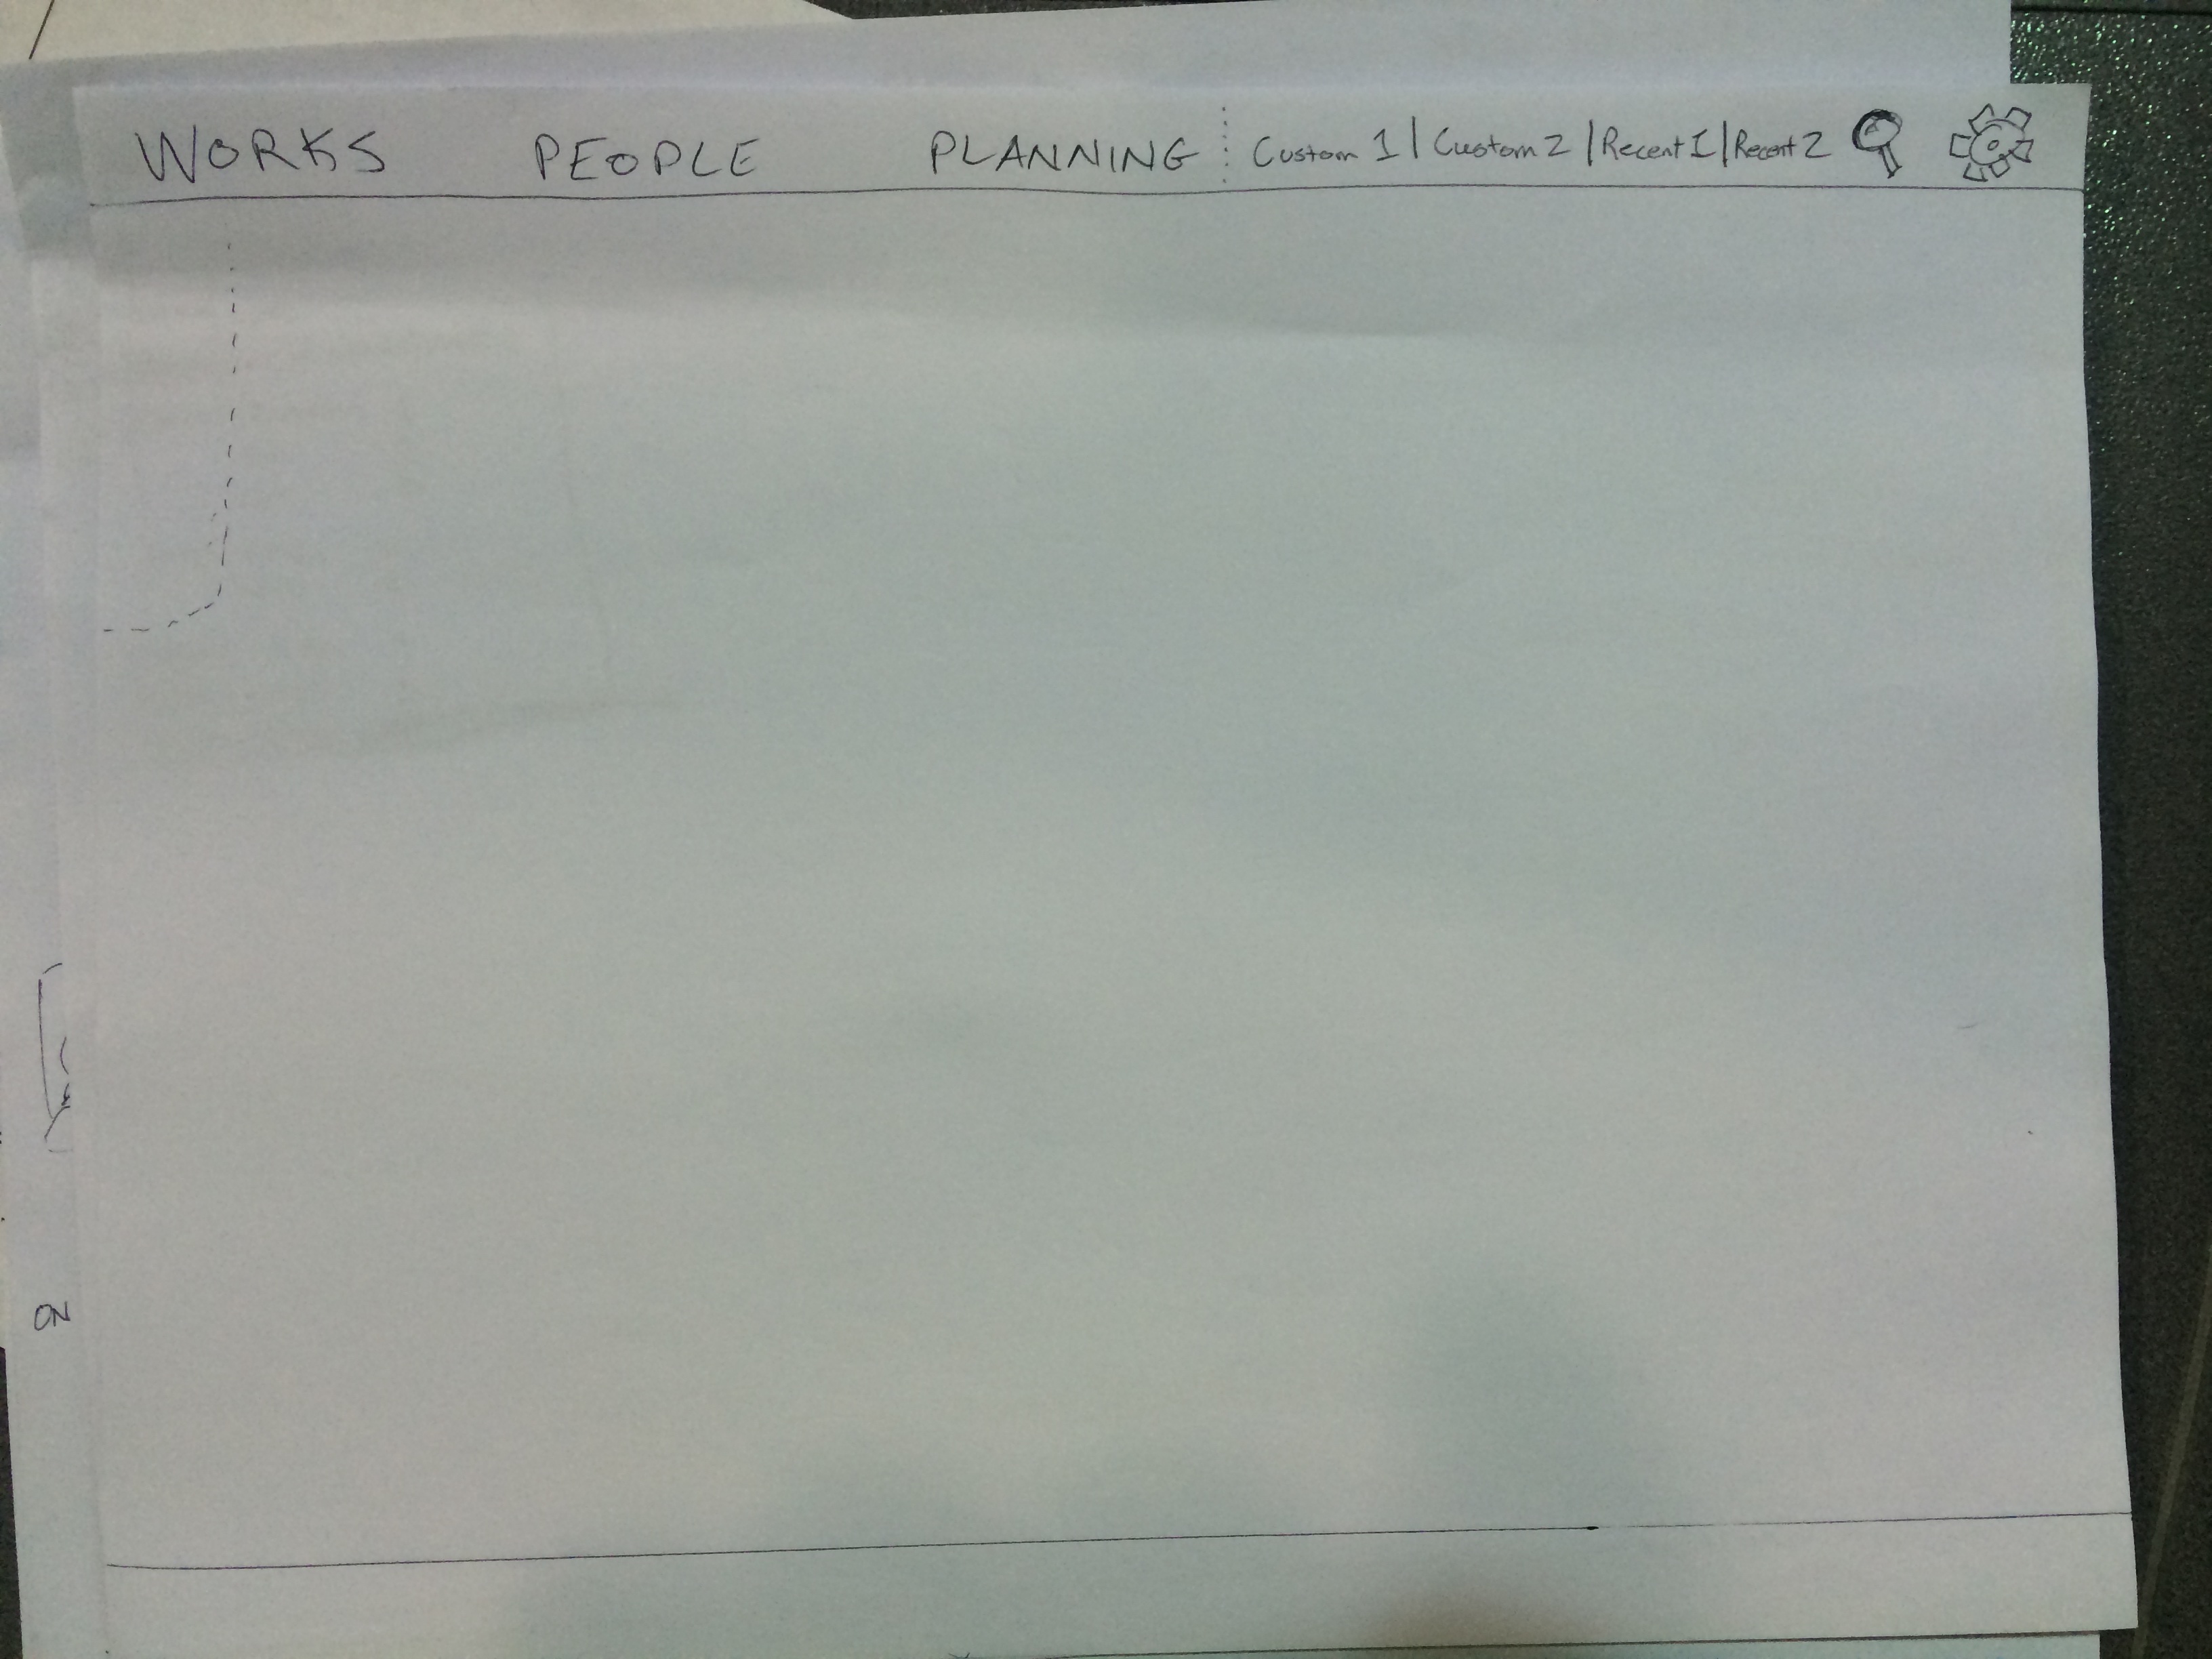 WORKS PEOPLE PLANNING Custom 1 | Custom 2 | Recent 1 | Recent 2